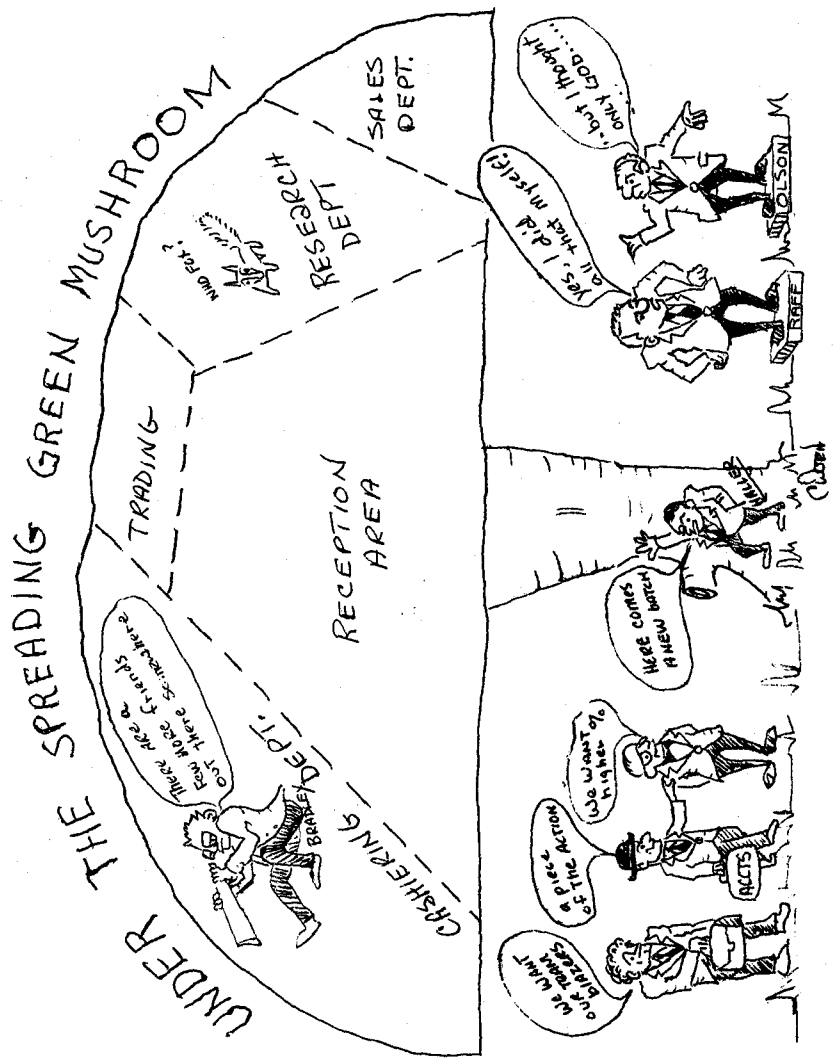 UNDER THE SPREADING GREEN MUSHROOM
THERE ARE A
FEW MORE friends
out there somewhere
BRADLEY
CASHIERING DEPT.
TRADING
RECEPTION
AREA
WHO FOX?
RESEARCH
DEPT
SALES
DEPT.
WE WANT
OUR TEAM
BLAZERS
A PIECE
OF THE ACTION
ACCTS
We WANT %
higher
HERE COMES
A NEW BATCH
HALLER
yes, I did
all that myself!
RAFF
...but I thought
ONLY GOD.....
OLSON